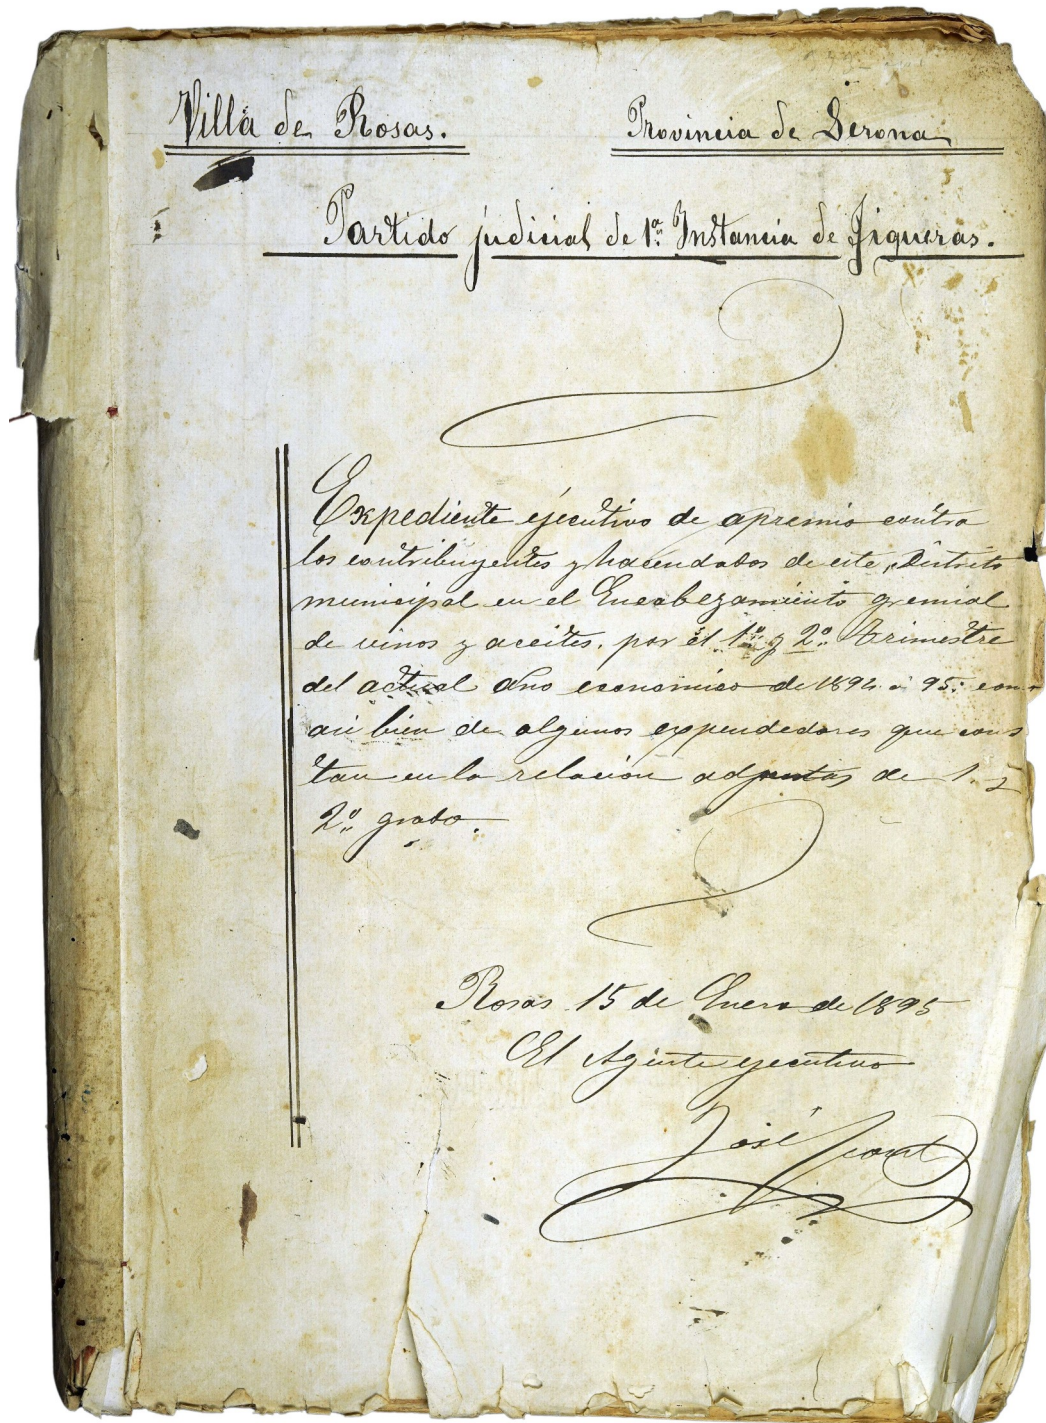 Villa de Rosas.
Provincia de Gerona
Partido judicial de 1ª Instancia de Figueras.
Expediente ejecutivo de apremio contra
los contribuyentes y hacendados de este Distrito
municipal en el Encabezamiento gremial
de vinos y aceites, por el 1º y 2º Trimestre
del actual año economico de 1894 a 95; como
asi bien de algunos expendedores que cons
tan en la relación adjuntas de 1. y
2º grado.
Rosas 15 de Enero de 1895
El Agente ejecutivo
José